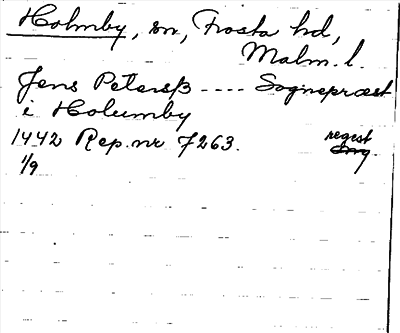 Holmby, sn, Frosta hd,
Malm. l.
Jens Peterss ---- Sognepræst
i Holumby
1442 Rep. nr 7263. regest
1/9